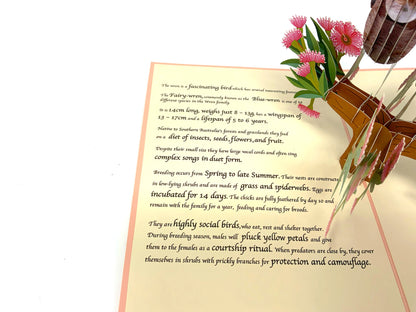 The wren is a fascinating bird which has several interesting features.
The Fairy-wren, commonly known as the Blue-wren is one of
different species in the Wren family.
is a 14cm long, weighs just 8 – 13g has a wingspan of
13 – 17cm and a lifespan of 5 to 6 years.
Native to Southern Australia's forests and grasslands they feed
on a diet of insects, seeds, flowers, and fruit.
Despite their small size they have large vocal cords and often sing
complex songs in duet form.
Breeding occurs from Spring to late Summer. Their nests are constructed
in low-lying shrubs and are made of grass and spiderwebs. Eggs are
incubated for 14 days. The chicks are fully feathered by day 10 and
remain with the family for a year, feeding and caring for broods.
They are highly social birds, who eat, rest and shelter together.
During breeding season, males will pluck yellow petals and give
them to the females as a courtship ritual. When predators are close by, they cover
themselves in shrubs with prickly branches for protection and camouflage.